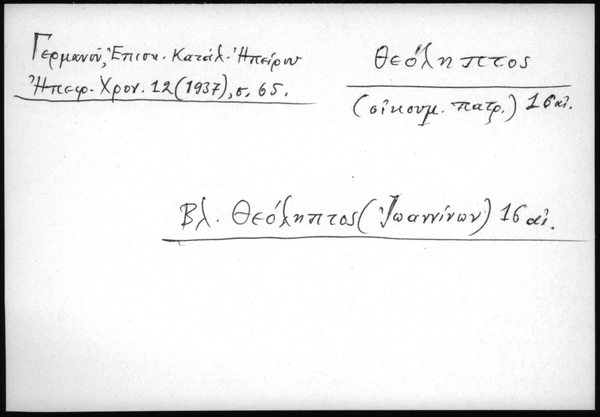 Γερμανοῦ, Ἐπισκ. Κατάλ. Ἠπείρου
Ἠπειρ. Χρον. 12 (1937), σ. 65.
Θεόληπτος
(οἰκουμ. πατρ.) 16 αἰ.
Βλ. Θεόληπτος (Ἰωαννίνων) 16 αἰ.